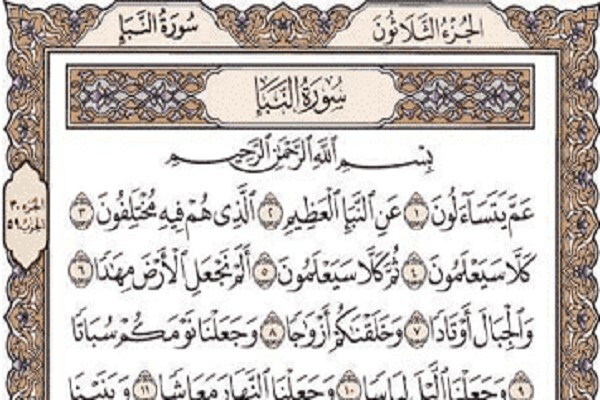 الجزء الثلاثون
سورة النبإ
سورة النبإ
بسم الله الرحمن الرحيم
عَمَّ يَتَسَاءَلُونَ ١ عَنِ النَّبَإِ الْعَظِيمِ ٢ الَّذِي هُمْ فِيهِ مُخْتَلِفُونَ ٣
كَلَّا سَيَعْلَمُونَ ٤ ثُمَّ كَلَّا سَيَعْلَمُونَ ٥ أَلَمْ نَجْعَلِ الْأَرْضَ مِهَٰدًا ٦
وَالْجِبَالَ أَوْتَادًا ٧ وَخَلَقْنَٰكُمْ أَزْوَٰجًا ٨ وَجَعَلْنَا نَوْمَكُمْ سُبَاتًا
٩ وَجَعَلْنَا الَّيْلَ لِبَاسًا ١٠ وَجَعَلْنَا النَّهَارَ مَعَاشًا ١١ وَبَنَيْنَا
الجزء ٣٠
الحزب ٥٩